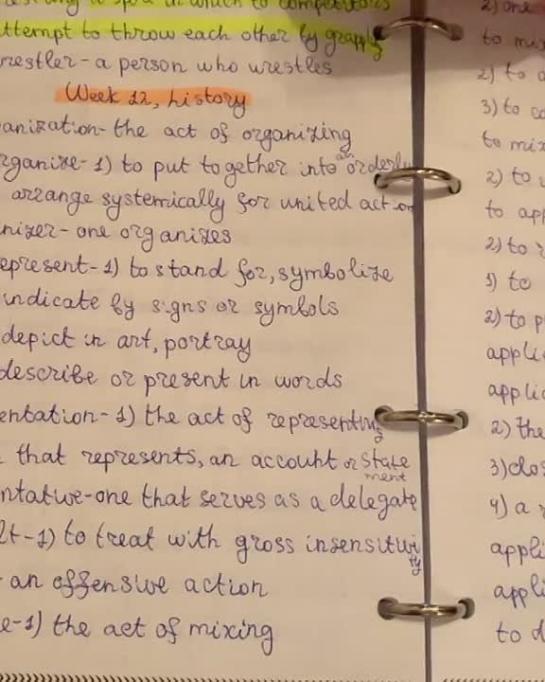 in which to competitors
ttempt to throw each other by grappl
restler - a person who wrestles
Week 12, history
anization - the act of organizing
rganize - 1) to put together into an orderly
arrange systemically for united action
nizer - one organizes
epresent - 1) to stand for, symbolize
indicate by signs or symbols
depict in art, portray
describe or present in words
entation - 1) the act of representing
that represents, an account or statement
ntative - one that serves as a delegate
lt - 1) to treat with gross insensitivity
- an offensive action
e - 1) the act of mixing
2) one
to mix
2) to
3) to co
to mix
2) to
to app
2) to
1) to
2) to p
appli
applic
2) the
3) clos
4) a
appli
appli
to d